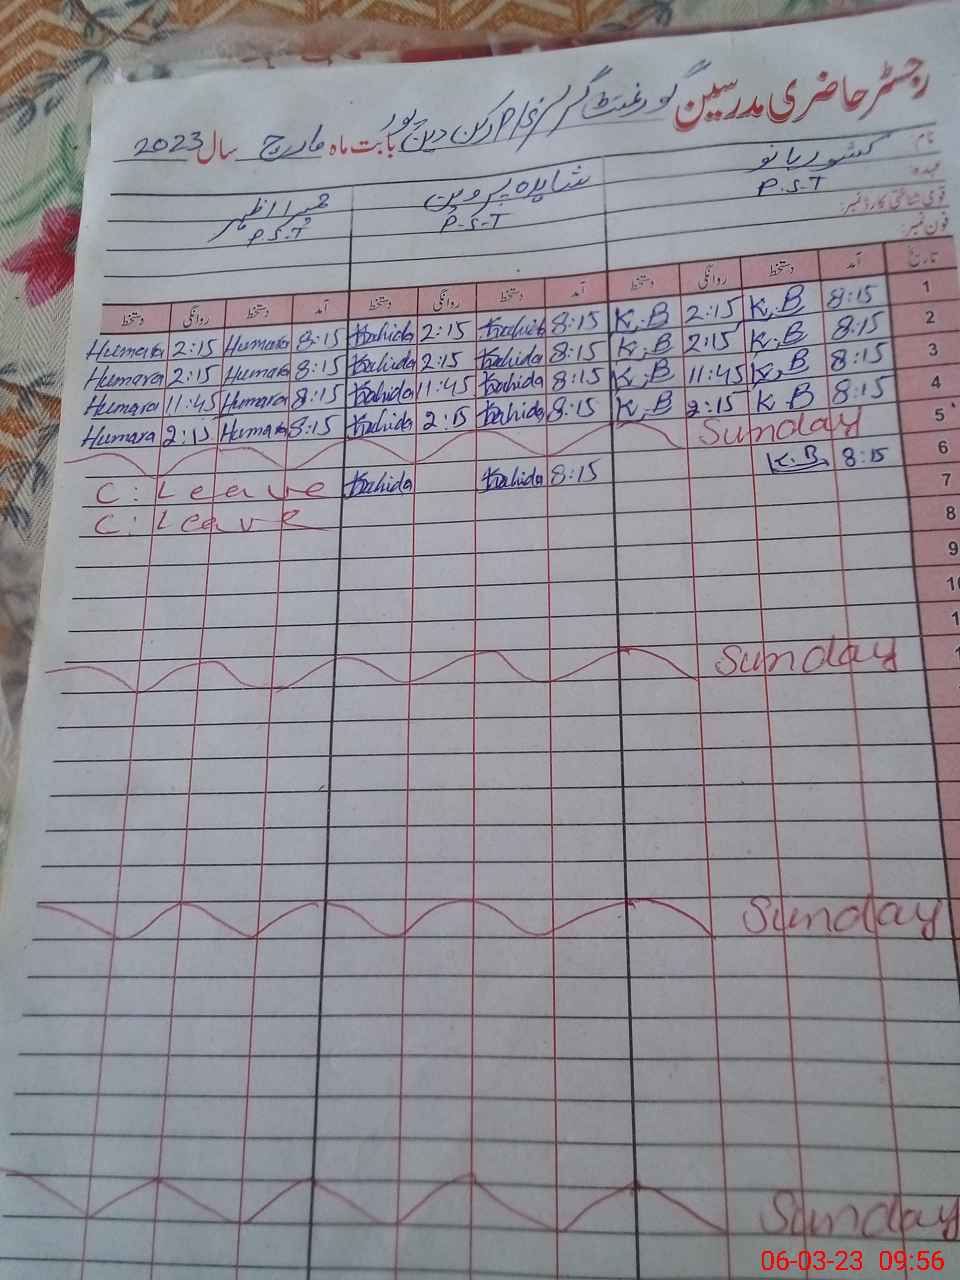 رجسٹر حاضری مدرسین گورنمنٹ گرلز P/S رکن دین پور بابت ماہ مارچ سال 2023
نام کشور بانو شاہدہ پروین حمیرا اظہر
عہدہ: P.S.T P.S-T P.S.T
قومی شناختی کارڈ نمبر:
فون نمبر:
تاریخ آمد دستخط روانگی دستخط آمد دستخط روانگی دستخط آمد دستخط روانگی دستخط
1 8:15 K.B 2:15 K.B 8:15 2:15 8:15 Humara 2:15 Humara
2 8:15 K.B 2:15 K.B 8:15 2:15 8:15 Humara 2:15 Humara
3 8:15 K.B 11:45 K.B 8:15 11:45 8:15 Humara 11:45 Humara
4 8:15 K.B 2:15 K.B 8:15 2:15 8:15 Humara 2:15 Humara
5 Sunday
6 8:15 K.B 8:15 C: Leave
7 C: Leave
8
9
10
1
1 Sunday
Sunday
Sunday
06-03-23 09:56